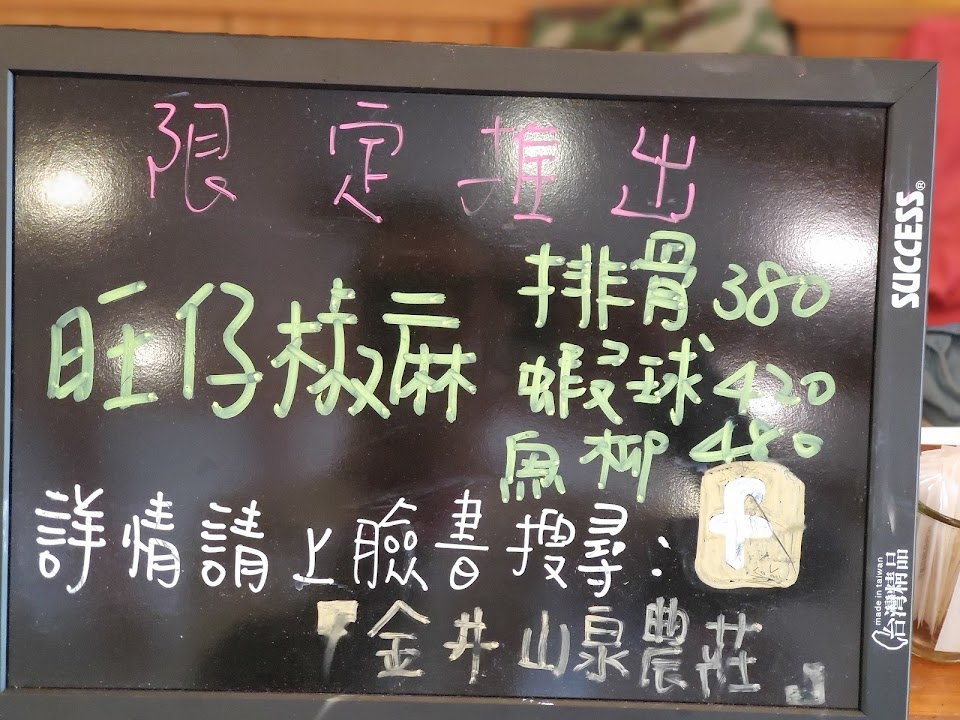 限定推出
旺仔椒麻
排骨 380
蝦球 420
魚柳 480
詳情請上臉書搜尋: f
「金井山泉農莊」
SUCCESS®
made in taiwan
台灣精品